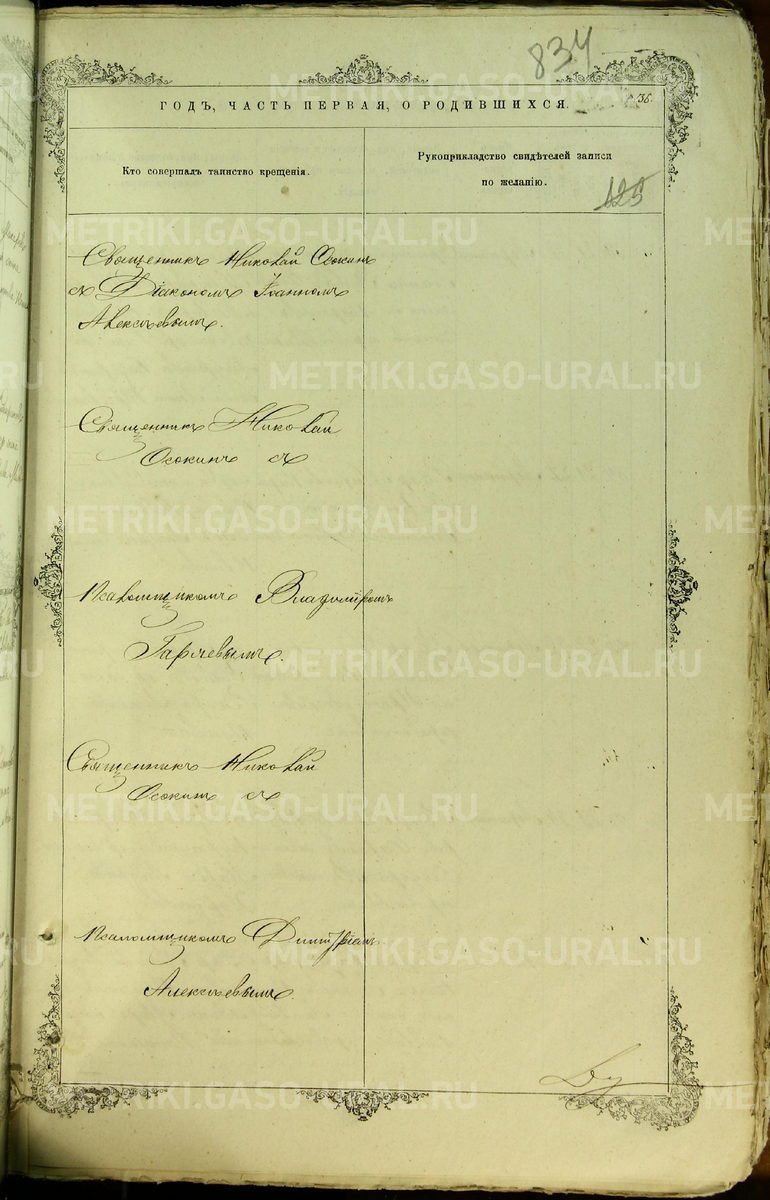 834
ГОДЪ, ЧАСТЬ ПЕРВАЯ, О РОДИВШИХСЯ.
Кто совершалъ таинство крещенія.
Рукоприкладство свидѣтелей записи
по желанію.
125
Священникъ Николай Осокинъ
съ Діакономъ Іоанномъ
Алексѣевымъ.
Священникъ Николай
Осокинъ съ
Псаломщикомъ Владиміромъ
Гаряевымъ.
Священникъ Николай
Осокинъ съ
Псаломщикомъ
Алексѣевымъ.
METRIKI.GASO-URAL.RU